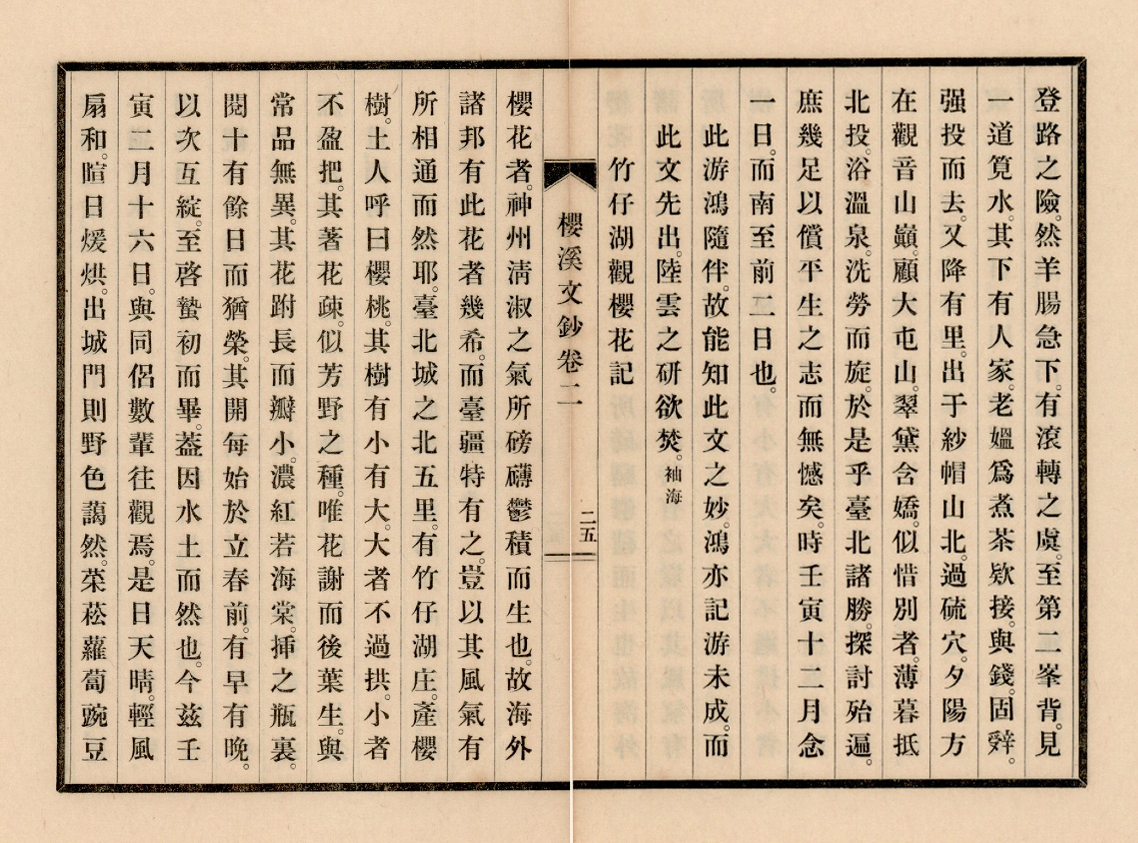 登路之險。然羊腸急下。有滾轉之虞。至第二峯背。見
一道筧水。其下有人家。老媼爲煮茶欵接。與錢。固辤。
强投而去。又降有里。出于紗帽山北。過硫穴。夕陽方
在觀音山巓。顧大屯山。翠黛含嬌。似惜別者。薄暮抵
北投。浴溫泉。洗勞而旋。於是乎臺北諸勝。探討殆遍。
庶幾足以償平生之志而無憾矣。時壬寅十二月念
一日。而南至前二日也。
此游鴻隨伴。故能知此文之妙。鴻亦記游未成。而
此文先出。陸雲之研欲焚。袖海
竹仔湖觀櫻花記
櫻溪文鈔卷二
二五
櫻花者。神州淸淑之氣所磅礴鬱積而生也。故海外
諸邦有此花者幾希。而臺疆特有之。豈以其風氣有
所相通而然耶。臺北城之北五里。有竹仔湖庄。產櫻
樹。土人呼曰櫻桃。其樹有小有大。大者不過拱。小者
不盈把。其著花疎。似芳野之種。唯花謝而後葉生。與
常品無異。其花跗長而瓣小。濃紅若海棠。揷之瓶裏。
閱十有餘日而猶榮。其開每始於立春前。有早有晚。
以次互綻。至啓蟄初而畢。葢因水土而然也。今茲壬
寅二月十六日。與同侶數輩往觀焉。是日天晴。輕風
扇和。暄日煖烘。出城門則野色藹然。菜菘蘿蔔豌豆